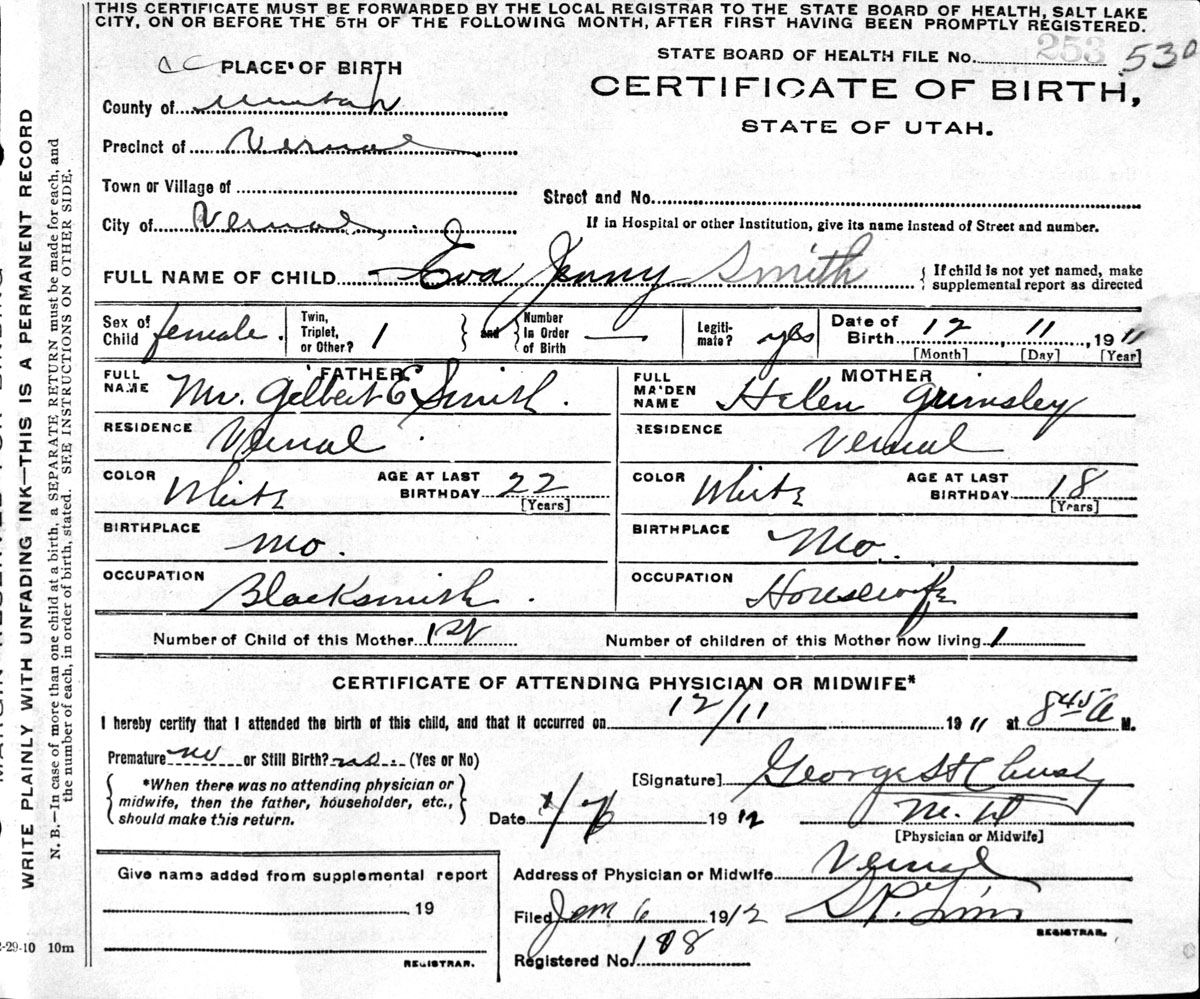 THIS CERTIFICATE MUST BE FORWARDED BY THE LOCAL REGISTRAR TO THE STATE BOARD OF HEALTH, SALT LAKE
CITY, ON OR BEFORE THE 5TH OF THE FOLLOWING MONTH, AFTER FIRST HAVING BEEN PROMPTLY REGISTERED.
STATE BOARD OF HEALTH FILE No. 253 530
PLACE OF BIRTH
CERTIFICATE OF BIRTH,
STATE OF UTAH.
County of Uintah
Precinct of Vernal
Town or Village of
Street and No.
City of Vernal
If in Hospital or other Institution, give its name instead of Street and number.
FULL NAME OF CHILD Eva Jenny Smith { If child is not yet named, make
supplemental report as directed
Sex of Child female. Twin, Triplet, or Other? 1 and Number In Order of Birth — Legitimate? yes Date of Birth 12, 11, 1911
[Month] [Day] [Year]
FATHER MOTHER
FULL NAME Mr. Gilbert E Smith. FULL MAIDEN NAME Helen Grimsley
RESIDENCE Vernal. RESIDENCE Vernal
COLOR White AGE AT LAST BIRTHDAY 22 [Years] COLOR White AGE AT LAST BIRTHDAY 18 [Years]
BIRTHPLACE Mo. BIRTHPLACE Mo.
OCCUPATION Blacksmith. OCCUPATION Housewife
Number of Child of this Mother 1st Number of children of this Mother now living 1
CERTIFICATE OF ATTENDING PHYSICIAN OR MIDWIFE*
I hereby certify that I attended the birth of this child, and that it occurred on 12/11 1911 at 845 A M.
Premature no or Still Birth? no (Yes or No)
*When there was no attending physician or
midwife, then the father, householder, etc.,
should make this return.
[Signature] George
M. D
Date 1912
[Physician or Midwife]
Give name added from supplemental report
19
REGISTRAR.
Address of Physician or Midwife Vernal
Filed Jan 6 1912
REGISTRAR.
Registered No. 108
WRITE PLAINLY WITH UNFADING INK—THIS IS A PERMANENT RECORD
N. B.—In case of more than one child at a birth, a SEPARATE RETURN must be made for each, and
the number of each, in order of birth, stated. SEE INSTRUCTIONS ON OTHER SIDE.
-29-10 10m